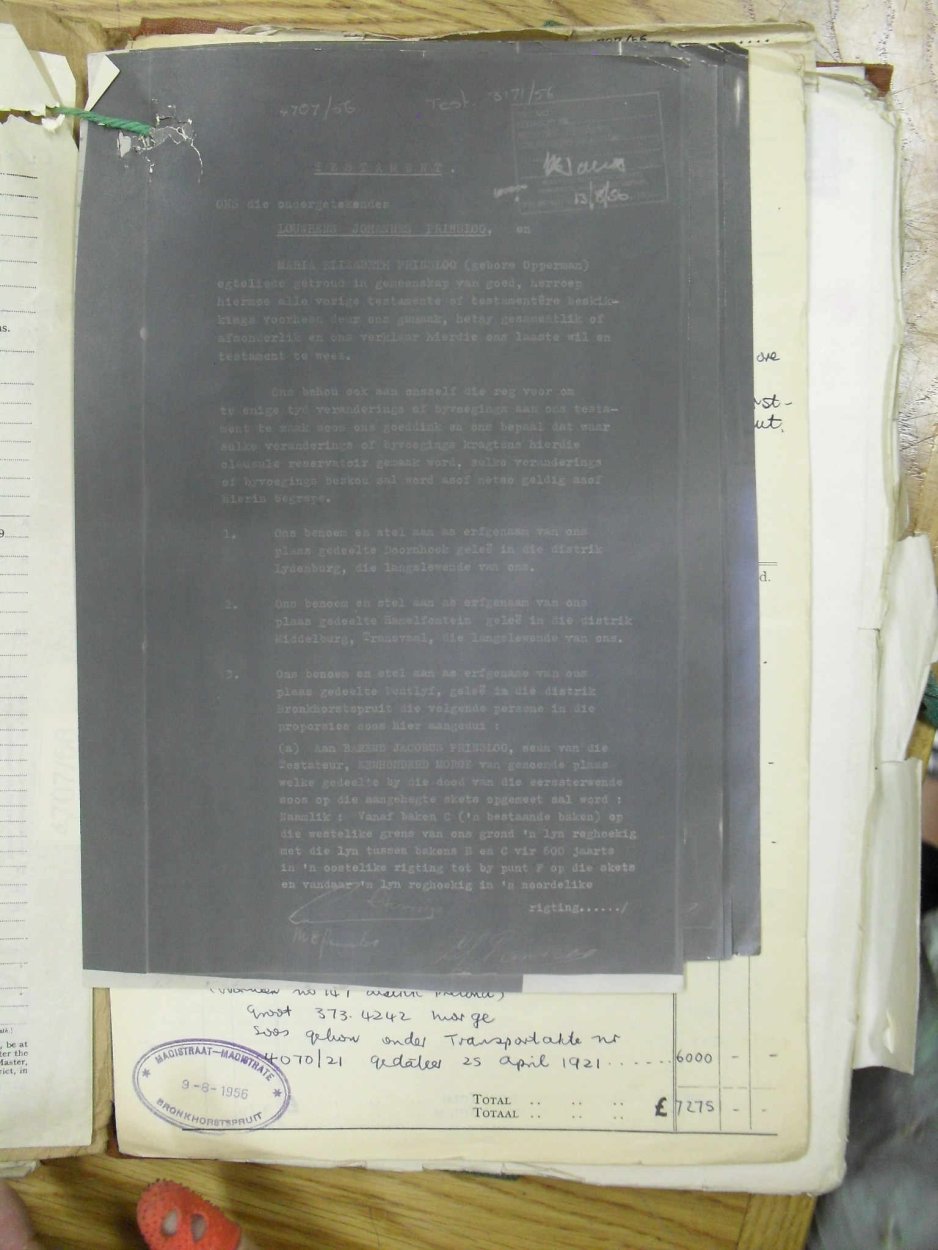 4707/56 Test. 3171/56
13/8/56
TESTAMENT.
ONS die ondergetekendes
LOURENS JOHANNES PRINSLOO, en
MARIA ELIZABETH PRINSLOO (gebore Opperman)
egteliede getroud in gemeenskap van goed, herroep
hiermee alle vorige testamente of testamentêre beskik-
kings voorheen deur ons gemaak, hetsy gesamentlik of
afsonderlik en ons verklaar hierdie ons laaste wil en
testament te wees.
Ons behou ook aan onsself die reg voor om
te enige tyd veranderings of byvoegings aan ons testa-
ment te maak soos ons goeddink en ons bepaal dat waar
sulke veranderings of byvoegings kragtens hierdie
clousule reservatoir gemaak word, sulke veranderings
of byvoegings beskou sal word asof netso geldig asof
hierin begrepe.
1. Ons benoem en stel aan as erfgenaam van ons
plaas gedeelte Doornhoek geleë in die distrik
Lydenburg, die langslewende van ons.
2. Ons benoem en stel aan as erfgenaam van ons
plaas gedeelte Hamelfontein geleë in die distrik
Middelburg, Transvaal, die langslewende van ons.
3. Ons benoem en stel aan as erfgename van ons
plaas gedeelte Bontlyf, geleë in die distrik
Bronkhorstspruit die volgende persone in die
proporsies soos hier aangedui :
(a) Aan BAREND JACOBUS PRINSLOO, seun van die
Testateur, EENHONDERD MORGE van genoemde plaas
welke gedeelte by die dood van die eerssterwende
soos op die aangehegte skets opgemeet sal word ;
Naamlik : Vanaf baken C ('n bestaande baken) op
die westelike grens van ons grond 'n lyn reghoekig
met die lyn tussen bakens B en C vir 600 jaarts
in 'n oostelike rigting tot by punt F op die skets
en vandaar 'n lyn reghoekig in 'n noordelike
rigting....../
Groot 373.4242 morge
soos gehou onder Transportakte nr
4070/21 gedateer 25 April 1921 ..... 6000 - -
TOTAL .. .. ..
TOTAAL .. .. .. £ 7275 - -
MAGISTRAAT—MAGISTRATE
9-8-1956
BRONKHORSTSPRUIT
d.